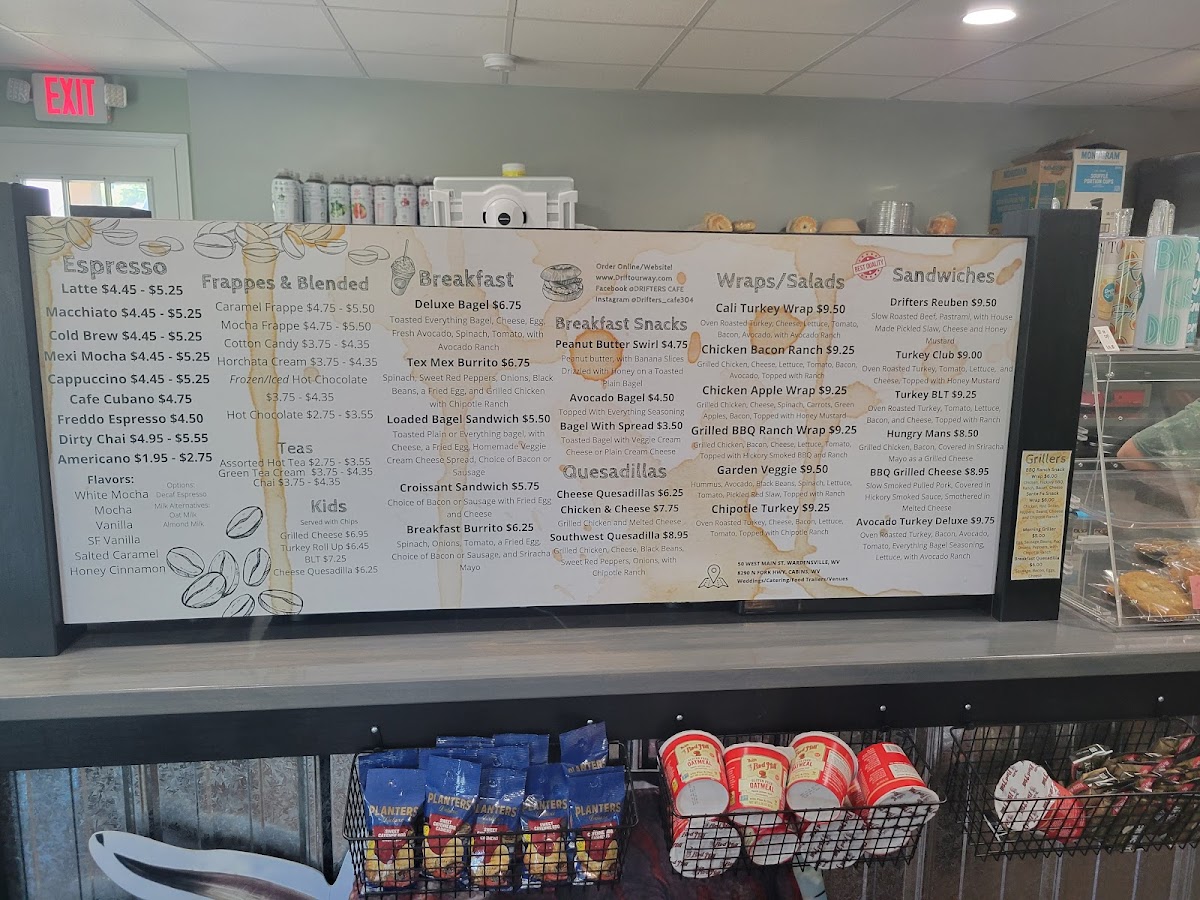 EXIT
MONOGRAM
Espresso
Latte $4.45 - $5.25
Macchiato $4.45 - $5.25
Cold Brew $4.45 - $5.25
Mexi Mocha $4.45 - $5.25
Cappuccino $4.45 - $5.25
Cafe Cubano $4.75
Freddo Espresso $4.50
Dirty Chai $4.95 - $5.55
Americano $1.95 - $2.75
Flavors:
White Mocha
Mocha
Vanilla
SF Vanilla
Salted Caramel
Honey Cinnamon
Options:
Decaf Espresso
Milk Alternatives:
Oat Milk
Almond Milk
Frappes & Blended
Caramel Frappe $4.75 - $5.50
Mocha Frappe $4.75 - $5.50
Cotton Candy $3.75 - $4.35
Horchata Cream $3.75 - $4.35
Frozen/Iced Hot Chocolate
$3.75 - $4.35
Hot Chocolate $2.75 - $3.55
Teas
Assorted Hot Tea $2.75 - $3.55
Green Tea Cream $3.75 - $4.35
Chai $3.75 - $4.35
Kids
Served with Chips
Grilled Cheese $6.95
Turkey Roll Up $6.45
BLT $7.25
Cheese Quesadilla $6.25
Breakfast
Deluxe Bagel $6.75
Toasted Everything Bagel, Cheese, Egg,
Fresh Avocado, Spinach, Tomato, with
Avocado Ranch
Tex Mex Burrito $6.75
Spinach, Sweet Red Peppers, Onions, Black
Beans, a Fried Egg, and Grilled Chicken
with Chipotle Ranch
Loaded Bagel Sandwich $5.50
Toasted Plain or Everything bagel, with
Cheese, a Fried Egg, Homemade Veggie
Cream Cheese Spread, Choice of Bacon or
Sausage
Croissant Sandwich $5.75
Choice of Bacon or Sausage with Fried Egg
and Cheese
Breakfast Burrito $6.25
Spinach, Onions, Tomato, a Fried Egg,
Choice of Bacon or Sausage, and Sriracha
Mayo
Order Online/Website!
www.Driftourway.com
Facebook @DRIFTERS CAFE
Instagram @Drifters_cafe304
Breakfast Snacks
Peanut Butter Swirl $4.75
Peanut butter, with Banana Slices
Drizzled with Honey on a Toasted
Plain Bagel
Avocado Bagel $4.50
Topped With Everything Seasoning
Bagel With Spread $3.50
Toasted Bagel with Veggie Cream
Cheese or Plain Cream Cheese
Quesadillas
Cheese Quesadillas $6.25
Chicken & Cheese $7.75
Grilled Chicken and Melted Cheese
Southwest Quesadilla $8.95
Grilled Chicken, Cheese, Black Beans,
Sweet Red Peppers, Onions, with
Chipotle Ranch
Wraps/Salads
Cali Turkey Wrap $9.50
Oven Roasted Turkey, Cheese, Lettuce, Tomato,
Bacon, Avocado, with Avocado Ranch
Chicken Bacon Ranch $9.25
Grilled Chicken, Cheese, Lettuce, Tomato, Bacon,
Avocado, Topped with Ranch
Chicken Apple Wrap $9.25
Grilled Chicken, Cheese, Spinach, Carrots, Green
Apples, Bacon, Topped with Honey Mustard
Grilled BBQ Ranch Wrap $9.25
Grilled Chicken, Bacon, Cheese, Lettuce, Tomato,
Topped with Hickory Smoked BBQ and Ranch
Garden Veggie $9.50
Hummus, Avocado, Black Beans, Spinach, Lettuce,
Tomato, Pickled Red Slaw, Topped with Ranch
Chipotle Turkey $9.25
Oven Roasted Turkey, Cheese, Bacon, Lettuce,
Tomato, Topped with Chipotle Ranch
50 WEST MAIN ST, WARDENSVILLE, WV
8290 N FORK HWY, CABINS, WV
Weddings/Catering/Food Trailers/Venues
BEST QUALITY
Sandwiches
Drifters Reuben $9.50
Slow Roasted Beef, Pastrami, with House
Made Pickled Slaw, Cheese and Honey
Mustard
Turkey Club $9.00
Oven Roasted Turkey, Tomato, Lettuce, and
Cheese, Topped with Honey Mustard
Turkey BLT $9.25
Oven Roasted Turkey, Tomato, Lettuce,
and Cheese, Topped with Ranch
Hungry Mans $8.50
Grilled Chicken, Bacon, Covered in Sriracha
Mayo as a Grilled Cheese
BBQ Grilled Cheese $8.95
Slow Smoked Pulled Pork, Covered in
Hickory Smoked Sauce, Smothered in
Melted Cheese
Avocado Turkey Deluxe $9.75
Oven Roasted Turkey, Bacon, Avocado,
Tomato, Everything Bagel Seasoning,
Lettuce, with Avocado Ranch
Grillers
BBQ Ranch Snack
PLANTERS
PLANTERS
PLANTERS
PLANTERS
PLANTERS
Red Mill
OATMEAL
OATMEAL
OATMEAL
OATMEAL